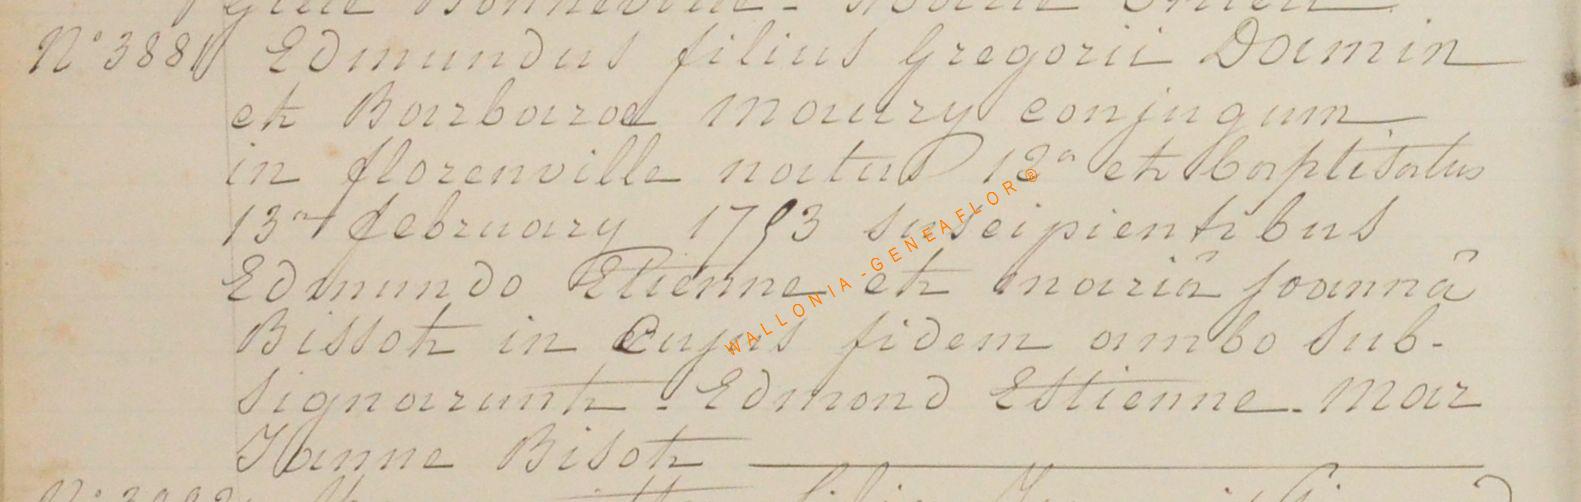 N° 3881 Edmundus filius Gregorii Damin
et Barbarae Maury conjugum
in florenville natus 12a et baptisatus
13a february 1793 suscipientibus
Edmundo Etienne et mariâ joannâ
Bissot in Cujus fidem ambo sub-
signarunt. Edmond Estienne. Mar
Janne Bisot
WALLONIA-GENEAFLOR®